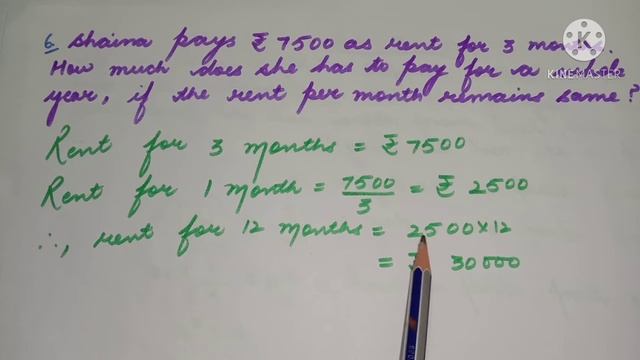 6. Shaina pays ₹ 7500 as rent for 3
How much does she has to pay for a
year, if the rent per month remains same?
Rent for 3 months = ₹ 7500
Rent for 1 month = 7500/3 = ₹ 2500
∴, rent for 12 months = 2500×12
= ₹ 30000
KINEMASTER